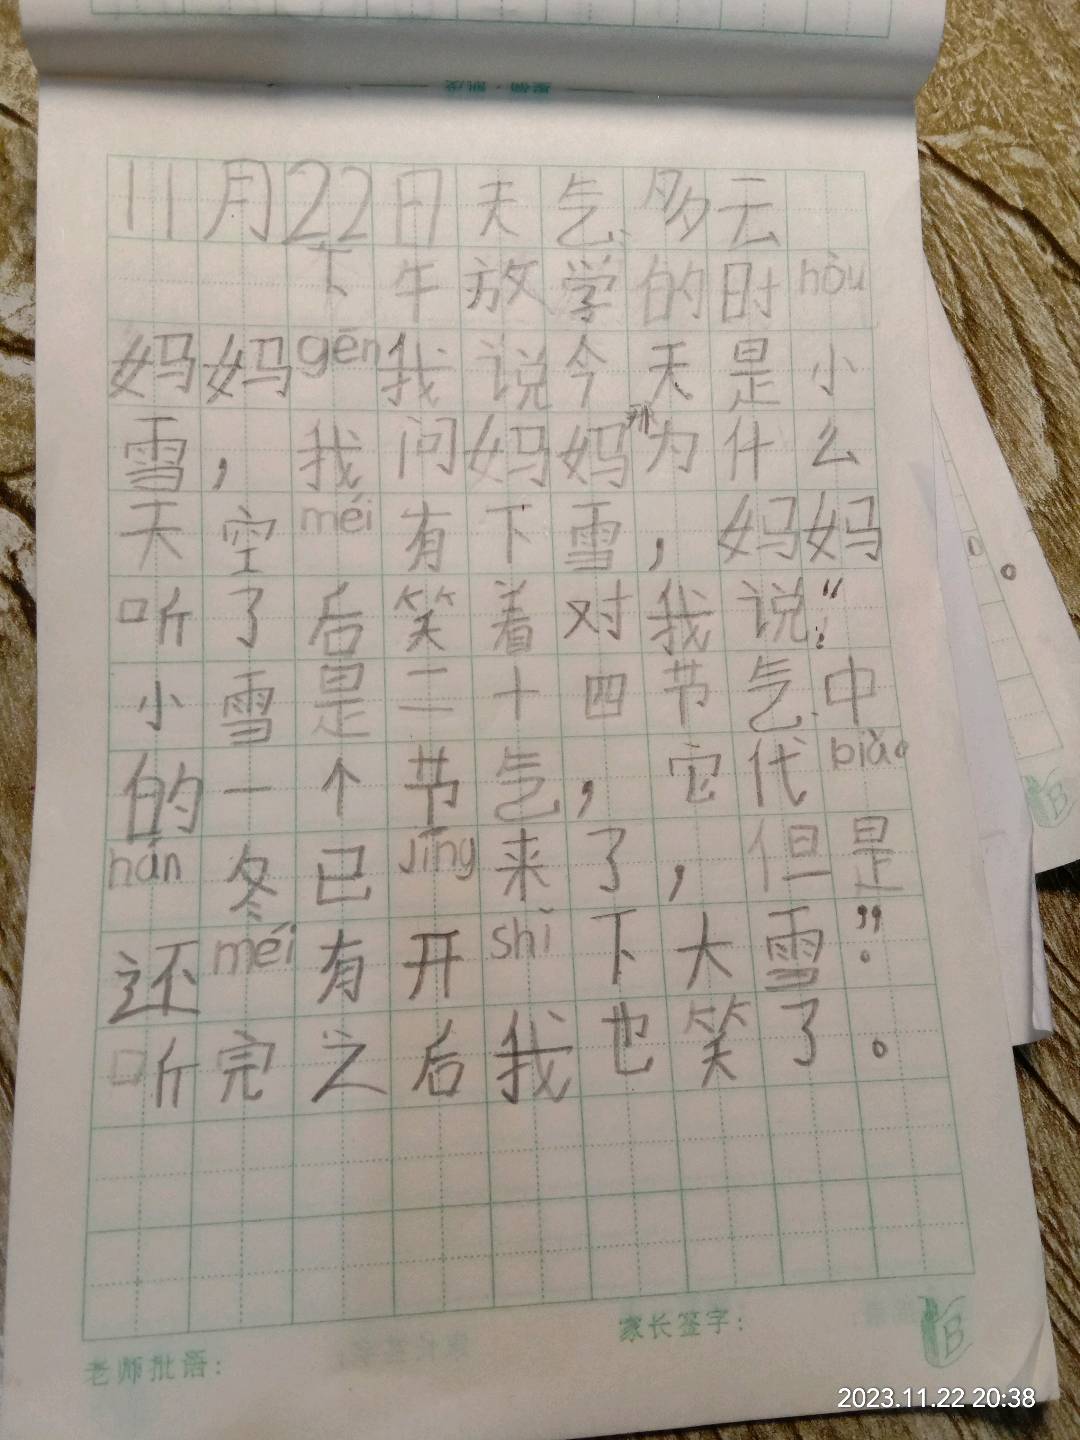 11月22日天气多云
下午放学的时hòu
妈妈gēn我说今天是小
雪，我问妈妈那为什么
天空méi有下雪，妈妈
听了后笑着对我说：“
小雪是二十四节气中
的一个节气，它代biǎo
hán冬已jīng来了，但是
还méi有开shǐ下大雪”。
听完之后我也笑了。
家长签字：
老师批语：
2023.11.22 20:38